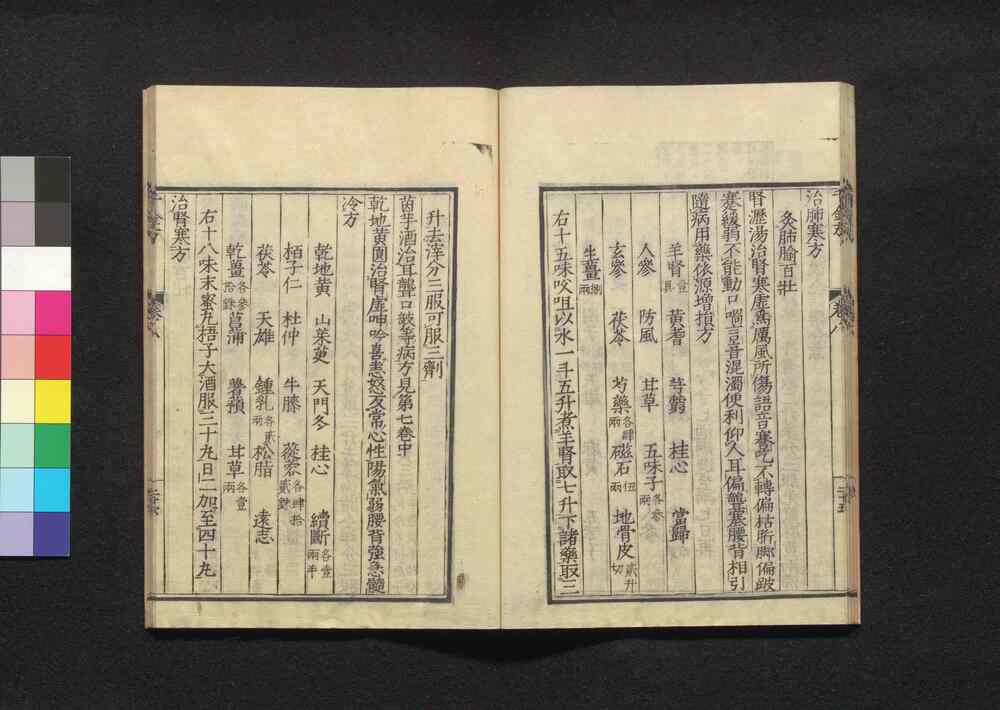 治肺寒方
灸肺腧百壯
腎瀝湯治腎寒虛爲厲風所傷語音蹇吃不轉偏枯胻脚偏跛
蹇緩弱不能動口喎言音混濁便利仰人耳偏聾塞腰背相引
隨病用藥依源增損方
羊腎壹具 黃耆 芎藭 桂心 當歸
人參 防風 甘草 五味子各參兩
玄參 茯苓 芍藥各肆兩 磁石伍兩 地骨皮貳升切
生薑捌兩
右十五味㕮咀以水一斗五升煮羊腎取七升下諸藥取三
千金方 卷八 二十五
升去滓分三服可服三劑
茵芋酒治耳聾口㖞等病方見第七卷中
乾地黃圓治腎虛呻吟喜恚怒反常心性陽氣弱腰背強急髓
冷方
乾地黃 山茱萸 天門冬 桂心 續斷各壹兩半
栢子仁 杜仲 牛膝 蓯蓉各肆拾貳銖
茯苓 天雄 鍾乳各貳兩 松脂 遠志
乾薑各參拾銖 菖蒲 薯蕷 甘草各壹兩
右十八味末蜜丸梧子大酒服三十丸日二加至四十丸
治腎寒方
千金方 卷八 二十六